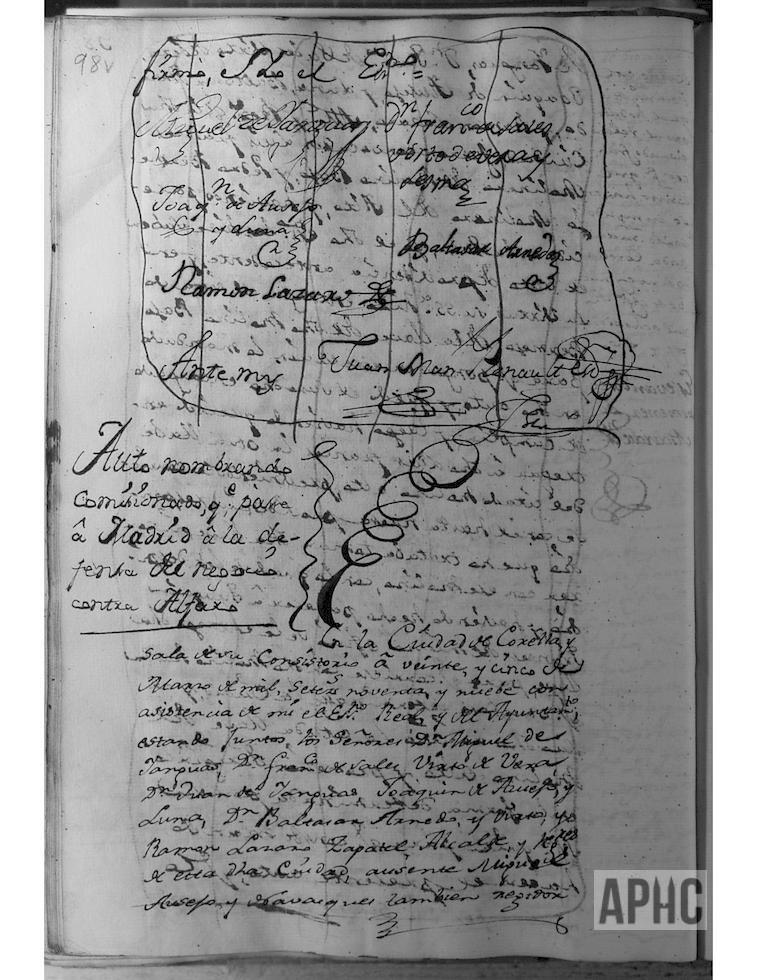 98v
firmó, Yo el Es.no =
Miguel de
Dn franco sales
virto de vera y
Lerma
Joaqn de Ausejo
y Luna
Baltasar Arnedo
Ramon Lazaro
Ante my Juan Manl Renault Es.no
Auto nombrando
comisionado, q.e pase
â Madrid â la de-
fensa del negocio
contra Alfaro
En la Ciudad de Corella, y
Sala de su Consistorio â veinte, y cinco de
Marzo de mil, setes noventa, y nuebe con
asistencia de mi el Es.no Real, y del Ayuntamto,
estando Juntos, los Señores Dn Miguel de
Dn franco de sales Virto de Vera,
Dn Juan de Joaquin de Ausejo, y
Luna, Dn Baltasar Arnedo, y Virto, y
Ramon Lazaro Zapatel Alcalde, y
de esta dha Ciudad, ausente Miguel
Ausejo, y tambien regidor
APHC